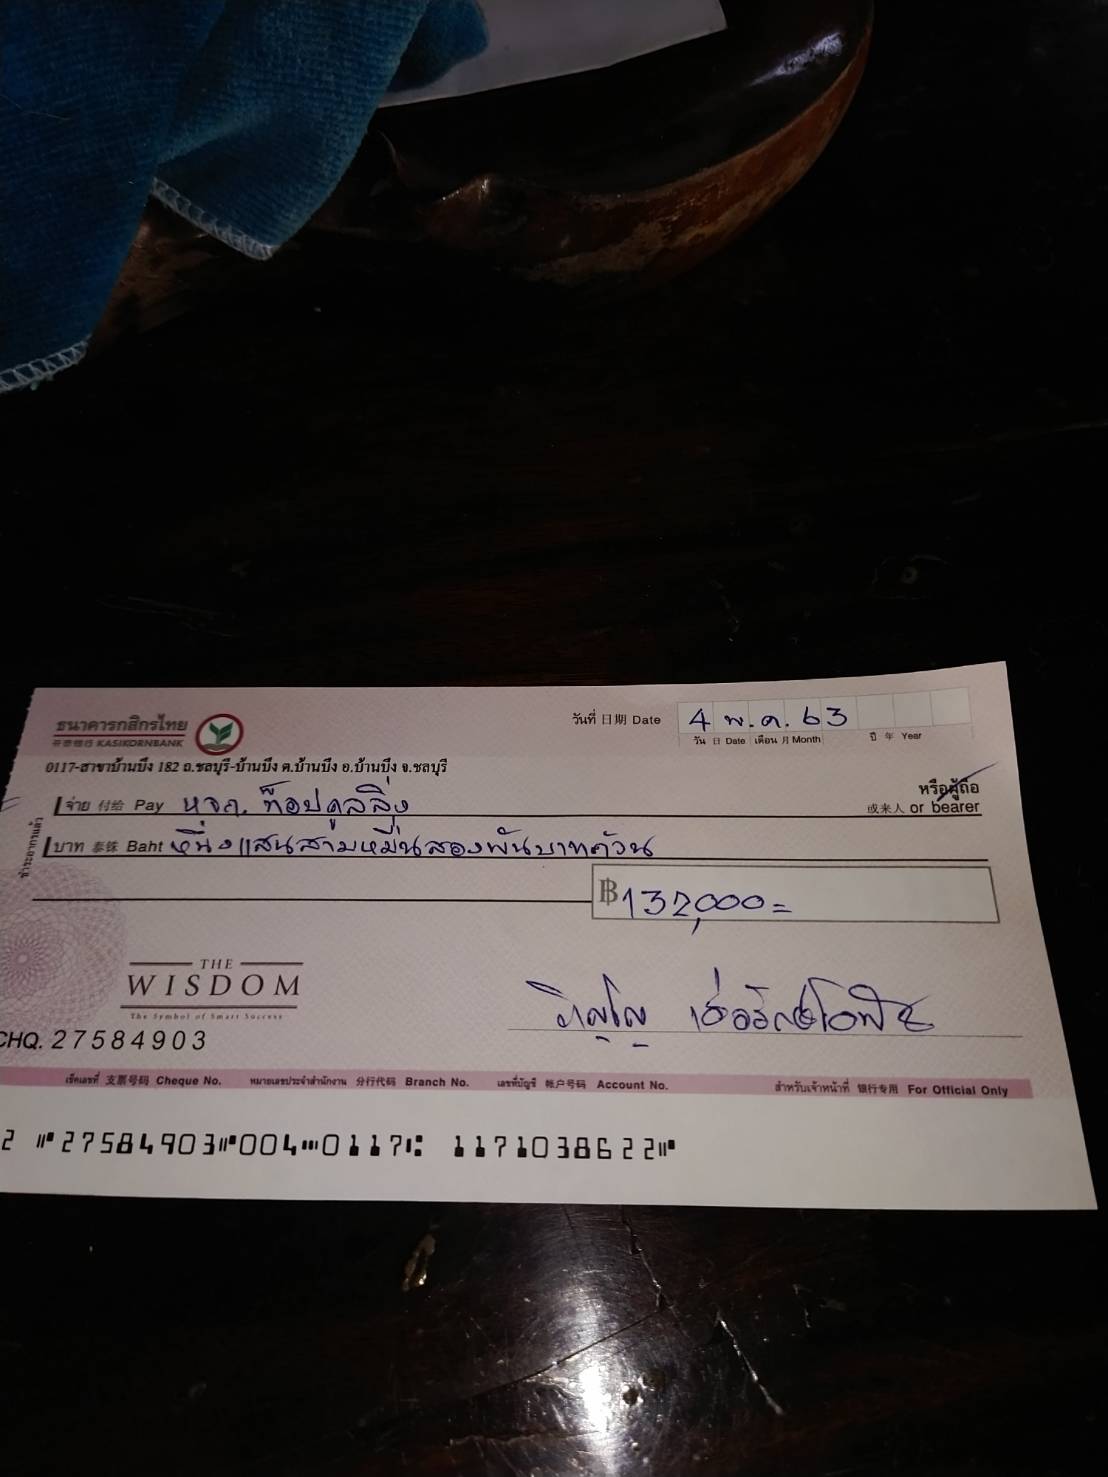 ธนาคารกสิกรไทย
开泰银行 KASIKORNBANK
วันที่ 日期 Date 4 พ.ค. 63
วัน 日 Date เดือน 月 Month ปี 年 Year
0117-สาขาบ้านบึง 182 ถ.ชลบุรี-บ้านบึง ต.บ้านบึง อ.บ้านบึง จ.ชลบุรี
หรือผู้ถือ
จ่าย 付给 Pay หจก. ท็อปคูลลิ่ง
或来人 or bearer
บาท 泰铢 Baht หนึ่งแสนสามหมื่นสองพันบาทถ้วน
฿132,000=
THE
WISDOM
The Symbol of Smart Success
CHQ. 27584903
เช็คเลขที่ 支票号码 Cheque No. หมายเลขประจำสำนักงาน 分行代码 Branch No. เลขที่บัญชี 帐户号码 Account No. สำหรับเจ้าหน้าที่ 银行专用 For Official Only
2 ⑈27584903⑈004⑉0117⑆ 1171038622⑈